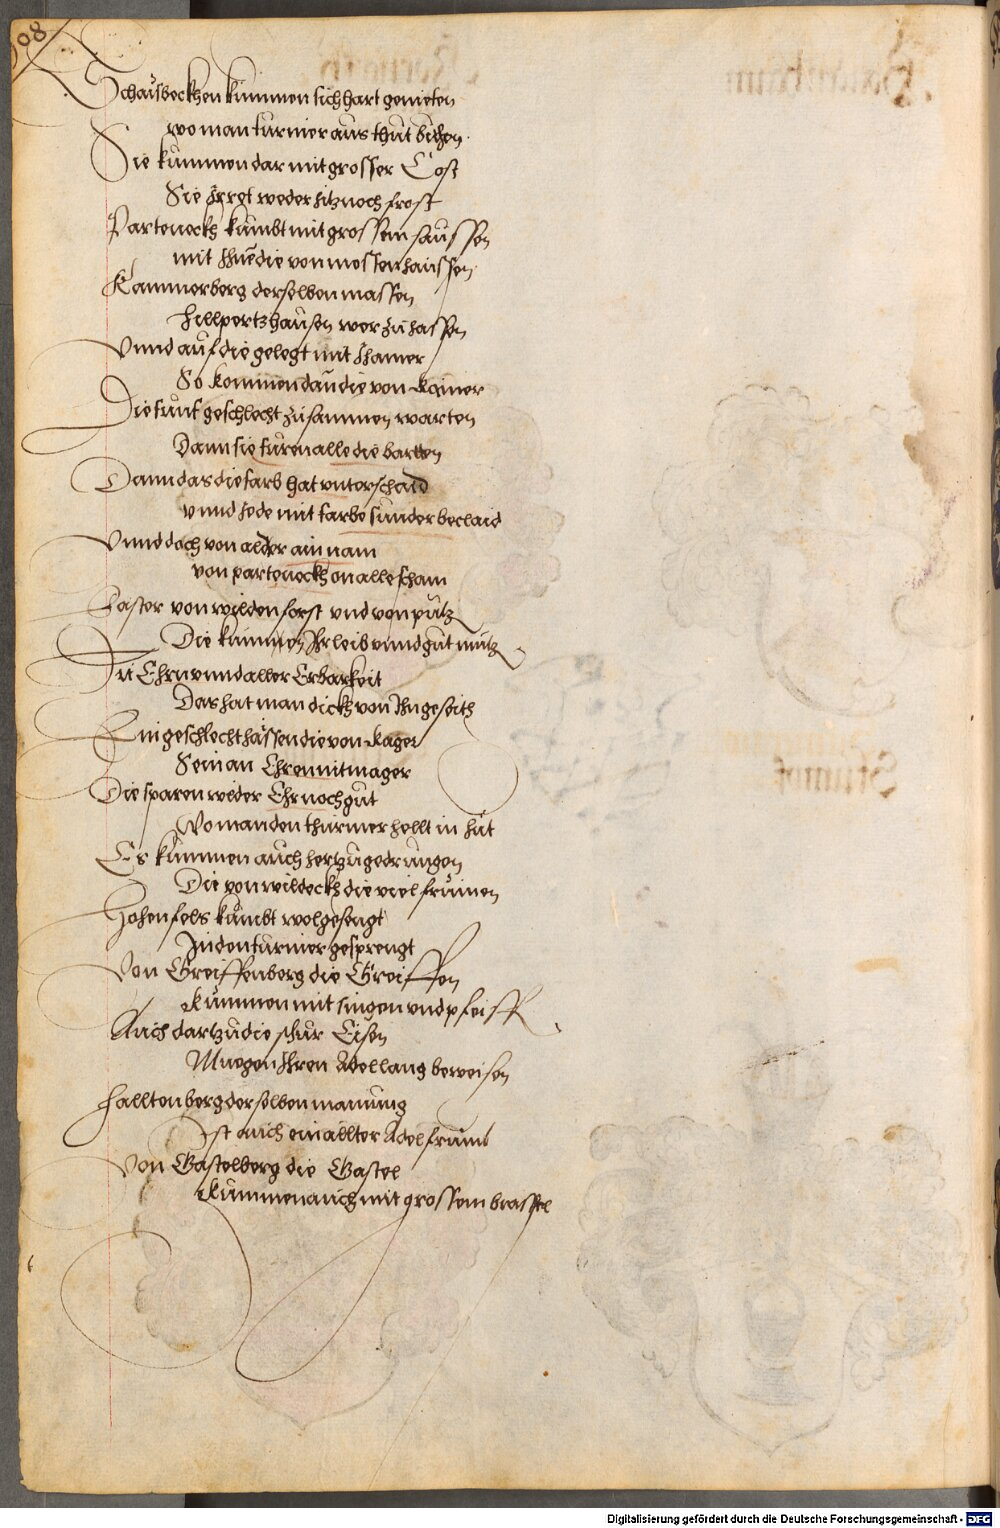 108
Schaŭsbeckhen kŭmmen sich hart genieten
wo man tŭrnier aŭs thŭt bieten
Sie kŭmmen dar mit grosser Cost
Sie Irret weder hitz noch frost
Parteneckh kŭmbt mit grossem saŭssen
mit Ihne die von mossenhaŭssen
Kammerberg derselben massen
hillpertzhaŭsen wer zŭ hassen
Vnnd aŭf die gelegt mit Ihamer
So kommen dan die von Kamer
Die fŭnf geschlecht zŭsammen warten
Dann sie fŭren alle die barten
Dann das die farb hat vnterschaid
vnnd Jede mit farbe sŭnder beclaid
Vnnd doch von alder ain nam
von parteneckh on alle scham
Laster von wildenforst vnd von pŭtz
Die kŭmmen Ihr leib vnnd gŭt nŭtz
Zŭ Ehrn vnnd aller Erbarkeit
Das hat man dickh von Ihn geseith
Ein geschlecht haissen die von Kager
Sein an Ehren nit mager
Die sparen weder Ehr noch gŭt
Wo man den thŭrnier hellt in hŭt
Es kŭmmen aŭch hertzŭ gedrŭngen
Die von wildeckh die viel frŭmen
Hohenfels kŭmbt wol gesengt
In den tŭrnier gesprengt
Von Greiffenberg die Greiffen
Kŭmmen mit singen vnd pfeiff
Aŭch dartzŭ die schŭr Eisen
Mŭegen Ihren Adel lang beweisen
Halltenberg derselben manŭng
Ist aŭch ein allter Adel frŭmb
Von Gastelberg die Gastel
Kŭmmen aŭch mit grossem brasstel
Digitalisierung gefördert durch die Deutsche Forschungsgemeinschaft - DFG